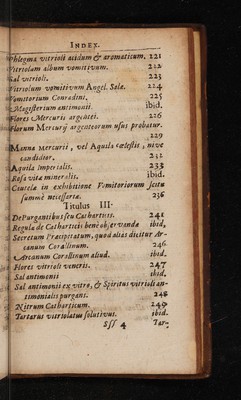 INDEX.
Phlegma vitrioli acidum & aromaticum. 221
Vitriolum album vomitivum. 212
Sal vitrioli. 223
Vitriolum vomitivum Angel. Salæ. 224
Vomitorium Conradini. 225
Magisterium antimonii. ibid.
Flores Mercurii argentei. 226
Florum Mercurij argenteorum usus probatur.
229
Manna Mercurii, vel Aquila cœlestis, nive
candidior. 231
Aquila Imperialis. 233
Rosa vitæ mineralis. ibid.
Cautelæ in exhibitione Vomitoriorum scitu
summè necessariæ. 236
Titulus III.
De Purgantibus seu Catharticis. 241
Regulæ de Catharticis benè observandæ ibid.
Secretum Præcipitatum, quod aliàs dicitur Ar-
canum Corallinum. 246
Arcanum Corallinum aliud. ibid.
Flores vitrioli veneris. 247
Sal antimonii ibid.
Sal antimonii ex vitro, & Spiritus vitrioli an-
timonialis purgans. 248
Nitrum Catharticum. 249
Tartarus vitriolatus solutivus. ibid.
Sss 4 Tar-